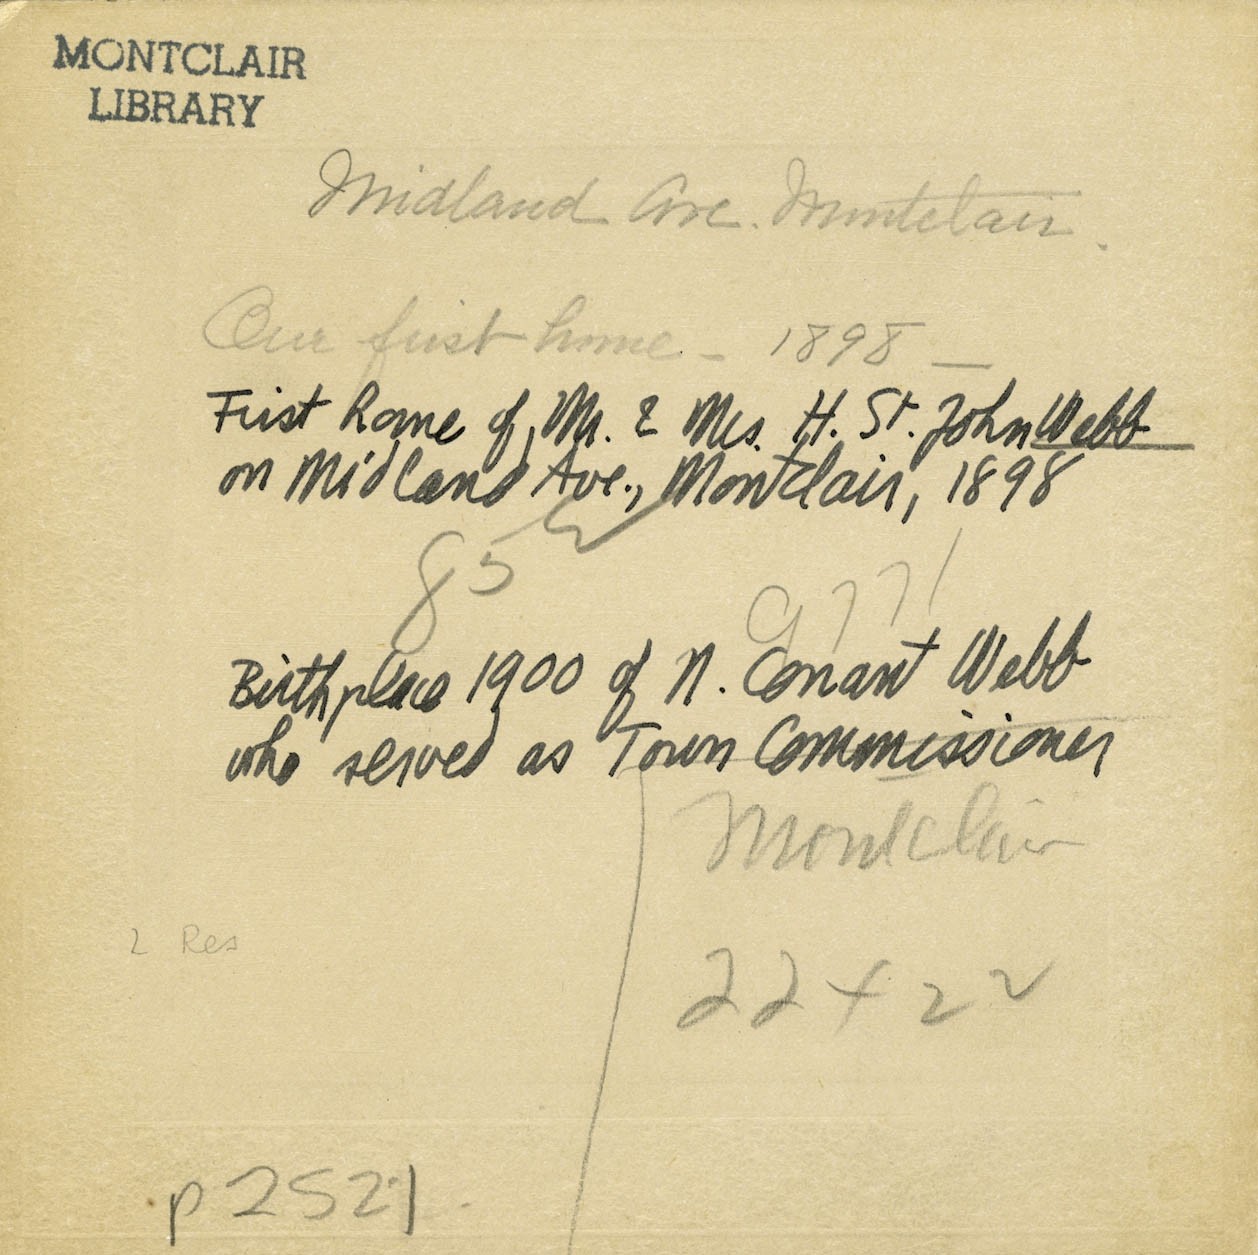 MONTCLAIR
LIBRARY
Midland Ave. Montclair.
Our first home - 1898 -
First home of Mr. & Mrs. H. St. John Webb
on Midland Ave., Montclair, 1898
85
9771
Birthplace 1900 of N. Conant Webb
who served as Town Commissioner
Montclair
2 Res
22 x 22
p2521